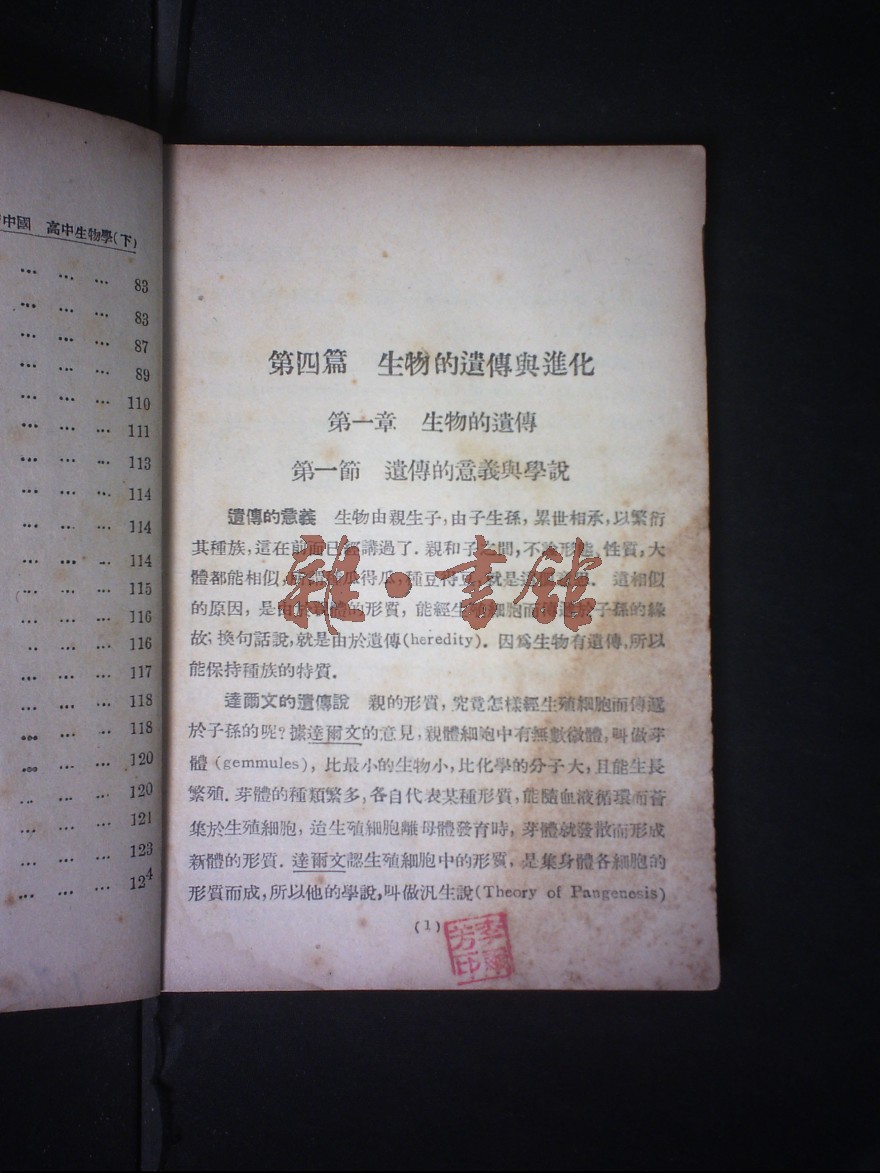 中國 高中生物學(下)
... ... ... 83
... ... ... 83
... ... ... 87
... ... ... 89
... ... ... 110
... ... ... 111
... ... ... 113
... ... ... 114
... ... ... 114
... ... ... 114
... ... ... 115
... ... ... 116
.. ... ... 116
... ... ... 117
... ... ... 118
... ... .. 118
... ... ... 120
... ... ... 120
... ... ... 121
... ... ... 123
... ... ... 124
第四篇 生物的遺傳與進化
第一章 生物的遺傳
第一節 遺傳的意義與學說
遺傳的意義 生物由親生子,由子生孫,累世相承,以繁衍
其種族,這在前面已經講過了.親和子之間,不論形態、性質,大
體都能相似,所謂種瓜得瓜,種豆得豆,就是這個意思. 這相似
的原因,是由於親體的形質,能經生殖細胞而傳遞於子孫的緣
故;換句話說,就是由於遺傳(heredity).因爲生物有遺傳,所以
能保持種族的特質.
達爾文的遺傳說 親的形質,究竟怎樣經生殖細胞而傳遞
於子孫的呢?據達爾文的意見,親體細胞中有無數微體,叫做芽
體(gemmules),比最小的生物小,比化學的分子大,且能生長
繁殖.芽體的種類繁多,各自代表某種形質,能隨血液循環而薈
集於生殖細胞,這生殖細胞離母體發育時,芽體就發散而形成
新體的形質.達爾文認生殖細胞中的形質,是集身體各細胞的
形質而成,所以他的學說,叫做汎生說(Theory of Pangenesis)
(1)
雜·書館